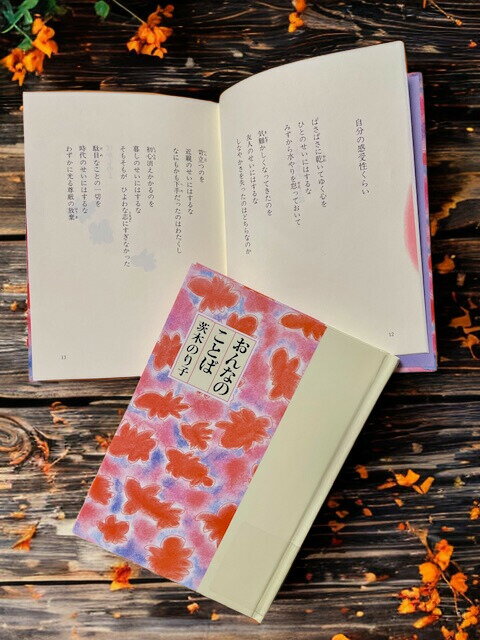 自分の感受性くらい
ぱさぱさに乾いてゆく心を
ひとのせいにはするな
みずから水やりを怠っておいて
気難かしくなってきたのを
友人のせいにはするな
しなやかさを失ったのはどちらなのか
12
苛立つのを
近親のせいにはするな
なにもかも下手だったのはわたくし
初心消えかかるのを
暮しのせいにはするな
そもそもが ひよわな志にすぎなかった
駄目なことの一切を
時代のせいにはするな
わずかに光る尊厳の放棄
13
おんなの
ことば
茨木のり子